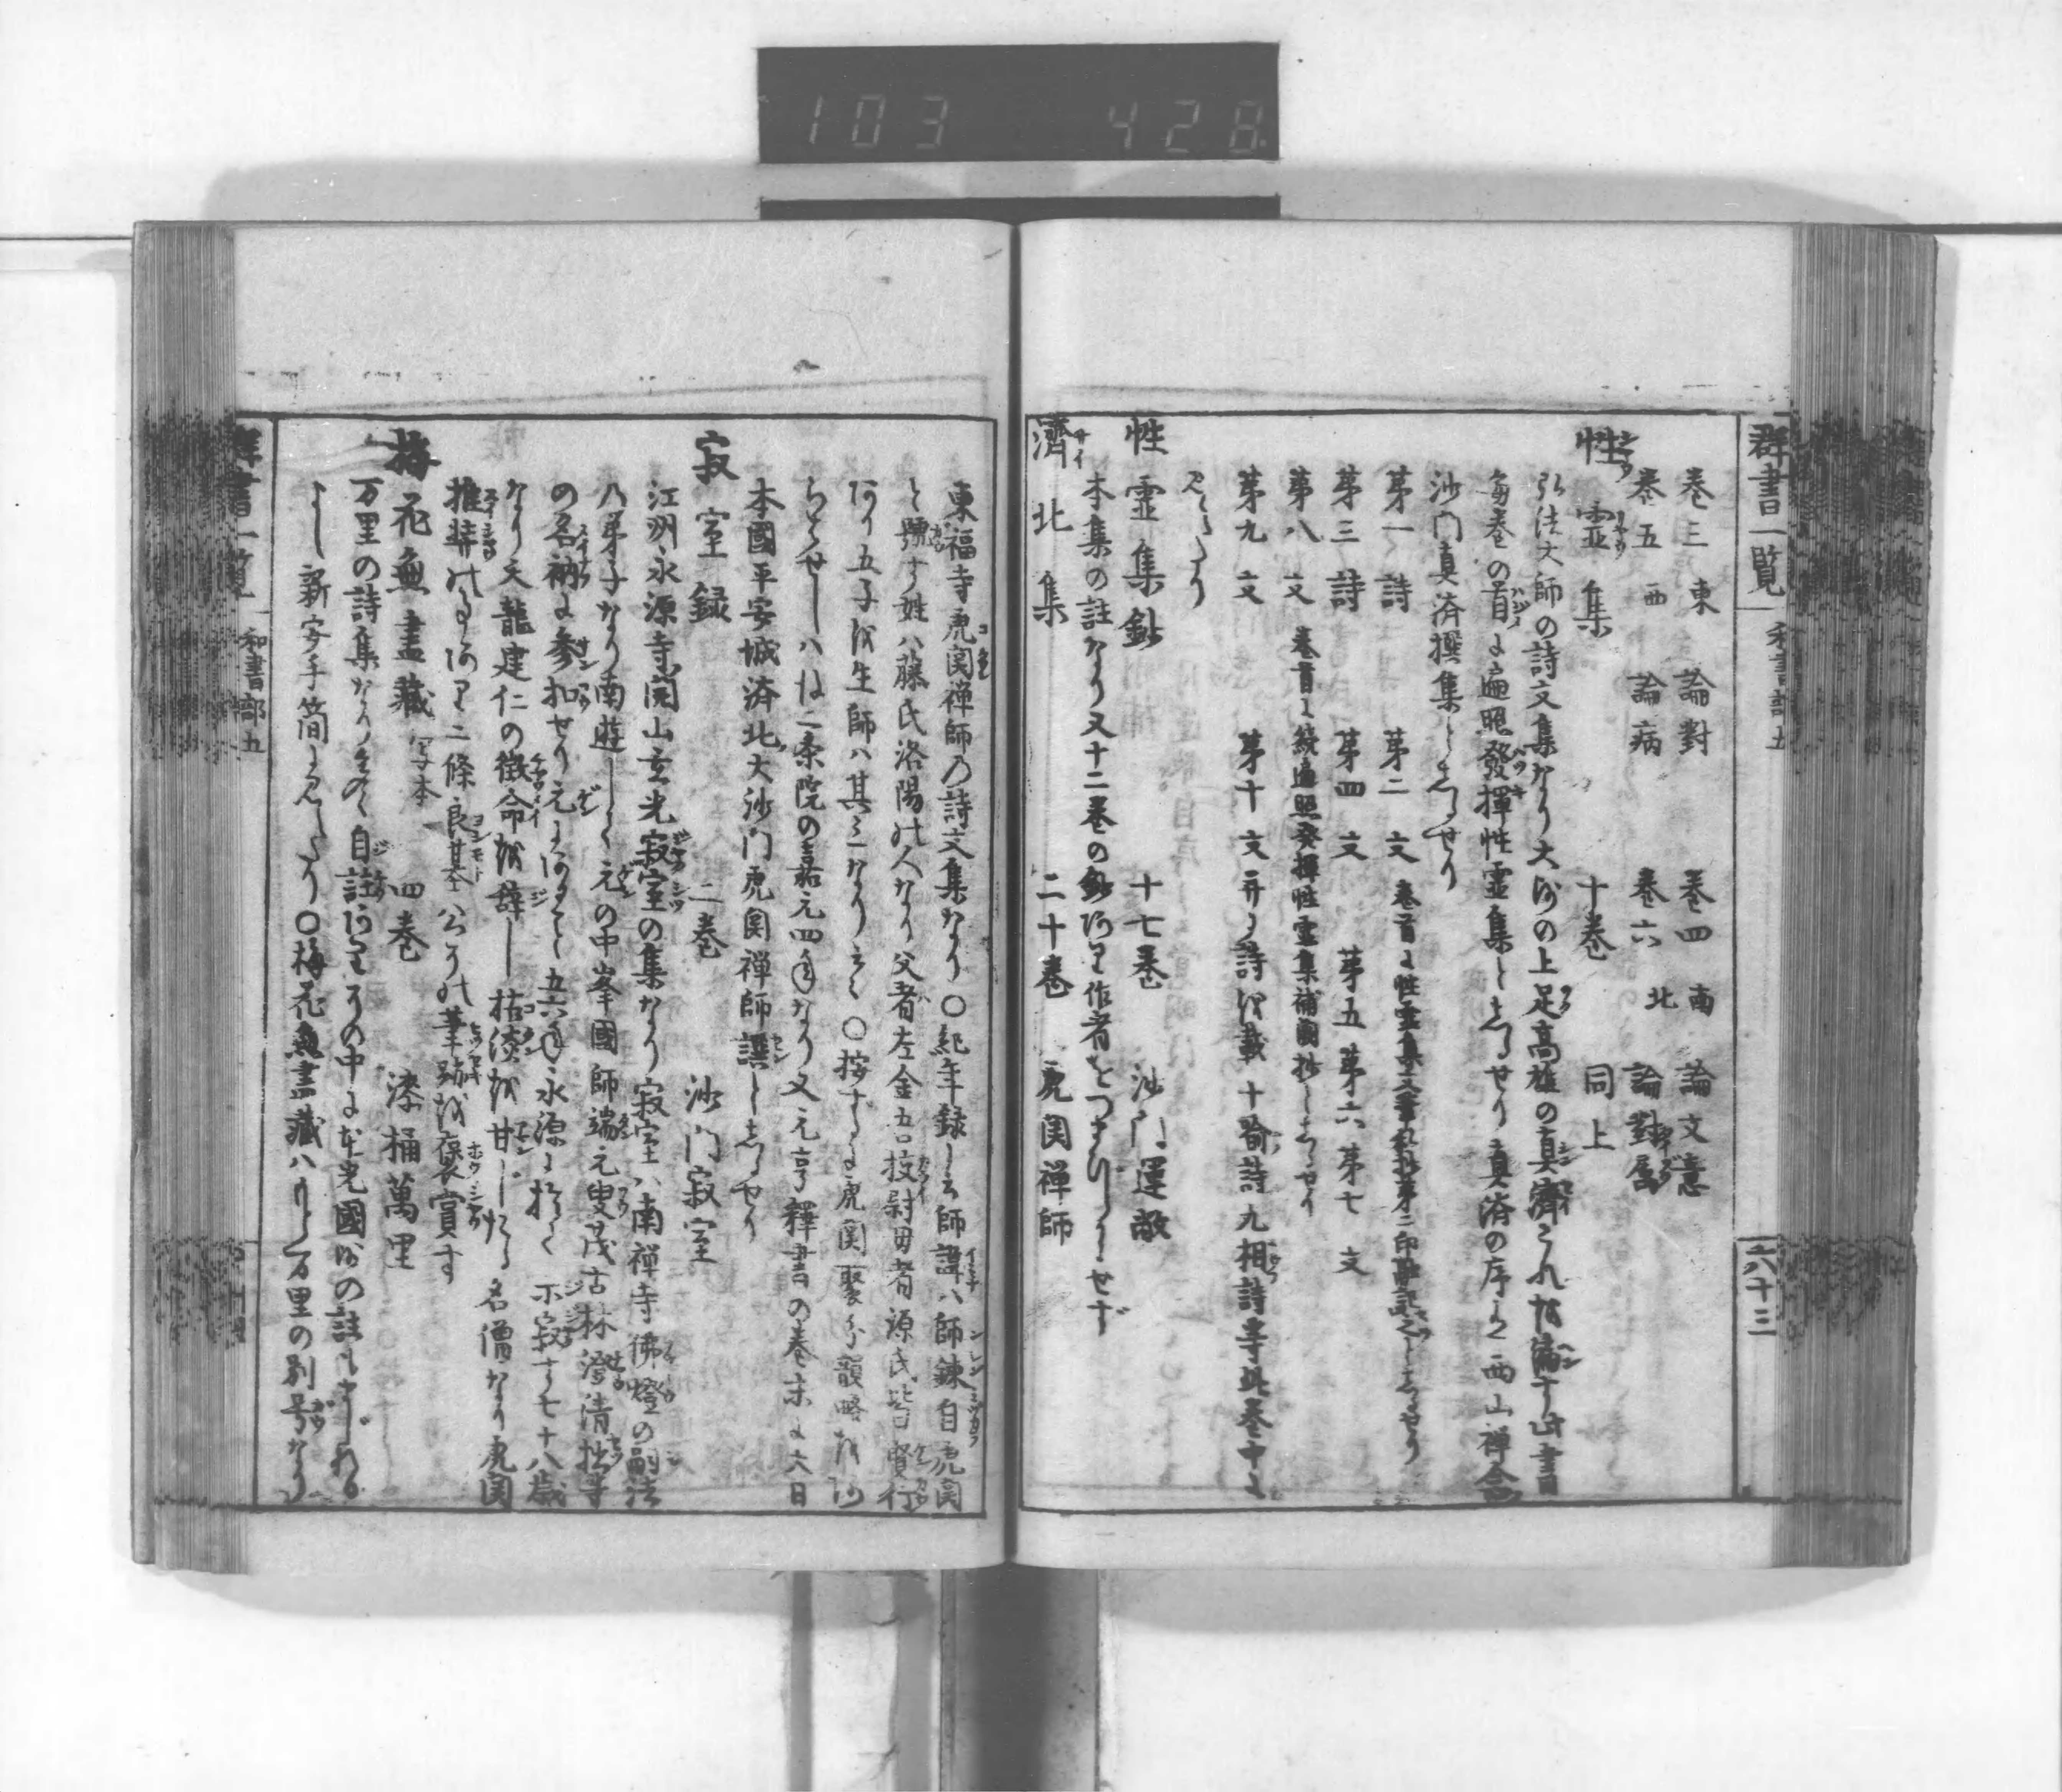 103 428
群書一覧 和書部五 六十三
巻三 東 論對 巻四 南 論文意
巻五 西 論病 巻六 北 論對属
性霊集 十巻 同上
弘法大師の詩文集なり大師の上足高雄の真濟これを編す此書
毎巻の首に遍照發揮性霊集としるせり真済の序に西山禅念
沙門真済撰集としるせり
第一 詩 第二 文 巻首に性霊集
第三 詩 第四 文 第五 第六 第七 文
第八 文 巻首に続遍照発揮性霊集補闕抄としるせり
第九 文 第十 文 并に詩を載 十喩詩九相詩等此巻中に
見えたり
性霊集鈔 十七巻 沙門運敞
本集の註なり又十二巻の鈔あり作者をつまびらかにせず
濟北集 二十巻 虎関禅師
東福寺虎関禅師の詩文集なり〇紀年録に云師諱ハ師錬自虎関
と号す姓ハ藤氏洛陽の人なり父者左金吾校尉母者源氏皆有賢行
あり五子を生師ハ其三なりと云〇按するに虎関聚分韻略をあ
らハせしハ後二条院の嘉元四年なり又元亨釋書の巻末に大日
本國平安城済北大沙門虎関禅師譔としるせり
寂室録 二巻 沙門寂室
江洲永源寺開山玄光寂室の集なり寂室ハ南禅寺佛燈の嗣法
乃弟子なり南遊して元の中峯國師端元叟茂古林澄清拙等
の名衲に参扣せり元にあること五六年永源に於て示寂す七十八歳
なり天龍建仁の徴命を辞し枯淡を甘じたる名僧なり虎関
推奨のことあり二條良基公その筆跡を褒賞す
梅花無盡蔵 写本 四巻 漆桶萬里
万里の詩集なり其の自註ありその中に本光國師の註もまじれる
よし新安手簡に見えたり〇梅花無盡蔵ハもと万里の別号なり
群書一覧 和書部五